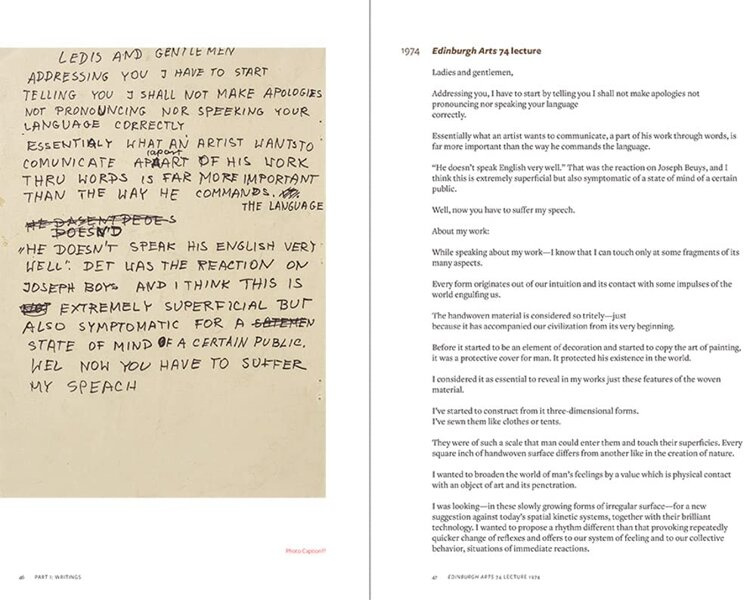 LEDIS AND GENTLEMEN
ADDRESSING YOU J HAVE TO START
TELLING YOU J SHALL NOT MAKE APOLOGIES
NOT PRONOUNCING NOR SPEEKING YOUR
LANGUAGE CORRECTLY
ESSENTIALY WHAT AN ARTIST WANTS TO
apart
COMUNICATE APAART OF HIS WORK
THRU WORDS IS FAR MORE IMPORTANT
THAN THE WAY HE COMMANDS.
THE LANGUAGE
DOESN'D
„HE DOESN'T SPEAK HIS ENGLISH VERY
WELL". DET WAS THE REACTION ON
JOSEPH BOYS AND I THINK THIS IS
EXTREMELY SUPERFICIAL BUT
ALSO SYMPTOMATIC FOR A SATEMEN
STATE OF MIND OF A CERTAIN PUBLIC.
WEL NOW YOU HAVE TO SUFFER
MY SPEACH
Photo Capoon??
46 PART I: WRITINGS
1974 Edinburgh Arts 74 lecture
Ladies and gentlemen,
Addressing you, I have to start by telling you I shall not make apologies not
pronouncing nor speaking your language
correctly.
Essentially what an artist wants to communicate, a part of his work through words, is
far more important than the way he commands the language.
“He doesn’t speak English very well.” That was the reaction on Joseph Beuys, and I
think this is extremely superficial but also symptomatic of a state of mind of a certain
public.
Well, now you have to suffer my speech.
About my work:
While speaking about my work—I know that I can touch only at some fragments of its
many aspects.
Every form originates out of our intuition and its contact with some impulses of the
world engulfing us.
The handwoven material is considered so tritely—just
because it has accompanied our civilization from its very beginning.
Before it started to be an element of decoration and started to copy the art of painting,
it was a protective cover for man. It protected his existence in the world.
I considered it as essential to reveal in my works just these features of the woven
material.
I’ve started to construct from it three-dimensional forms.
I’ve sewn them like clothes or tents.
They were of such a scale that man could enter them and touch their superficies. Every
square inch of handwoven surface differs from another like in the creation of nature.
I wanted to broaden the world of man’s feelings by a value which is physical contact
with an object of art and its penetration.
I was looking—in these slowly growing forms of irregular surface—for a new
suggestion against today’s spatial kinetic systems, together with their brilliant
technology. I wanted to propose a rhythm different than that provoking repeatedly
quicker change of reflexes and offers to our system of feeling and to our collective
behavior, situations of immediate reactions.
47 EDINBURGH ARTS 74 LECTURE 1974